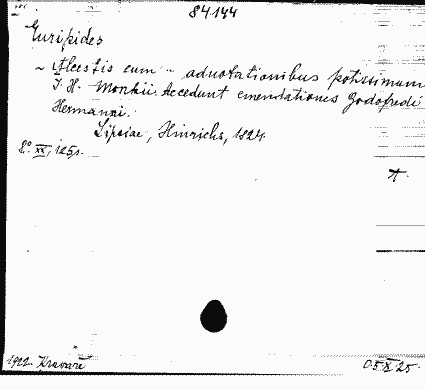 84144
Euripides
~ Alcestis cum ~ adnotationibus potissimum
J. H. Monkii. Accedunt emendationes Godofredi
Hermanni.
Lipsiae, Hinrichs, 1824.
8° XX, 125 p.
A.
1922 Kravaře
05 X 25.